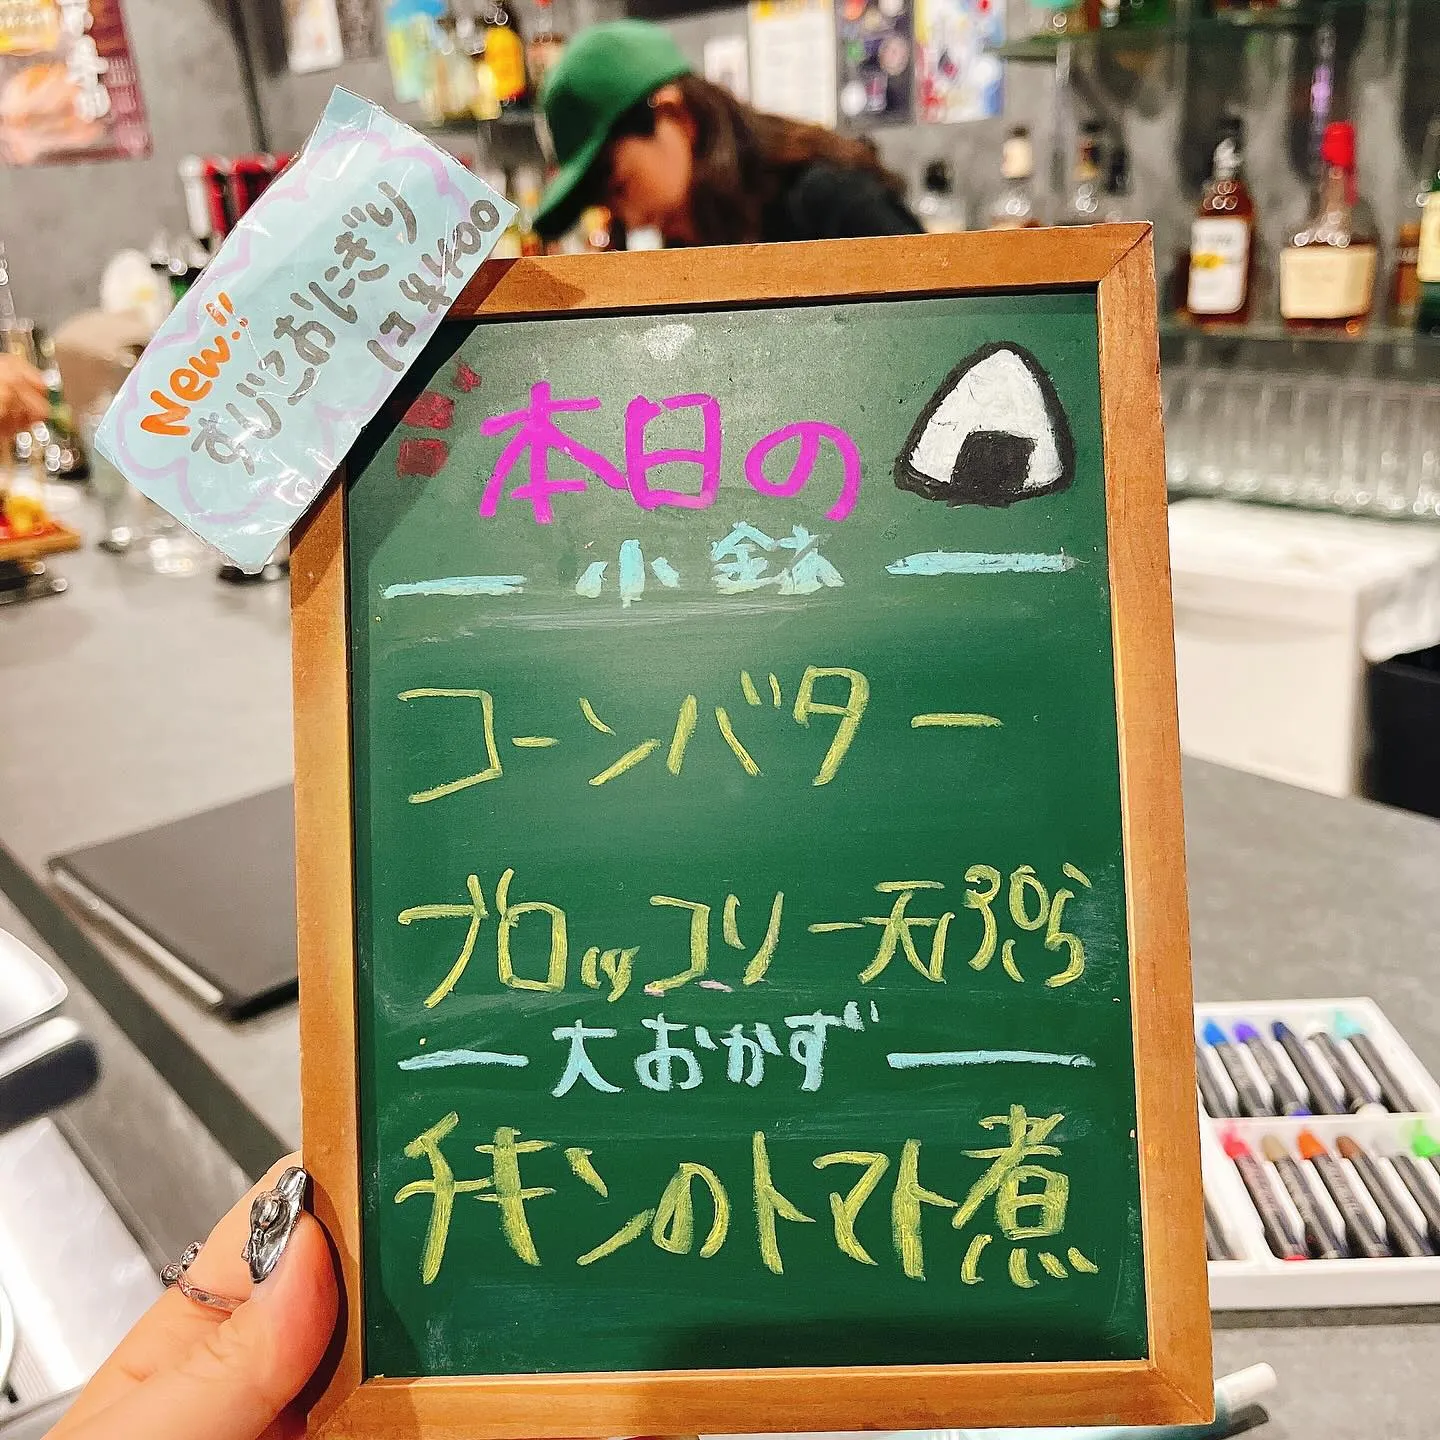 New!!
あじこおにぎり
1コ ¥400
本日の
小鉢
コーンバター
ブロッコリー天ぷら
大おかず
チキンのトマト煮